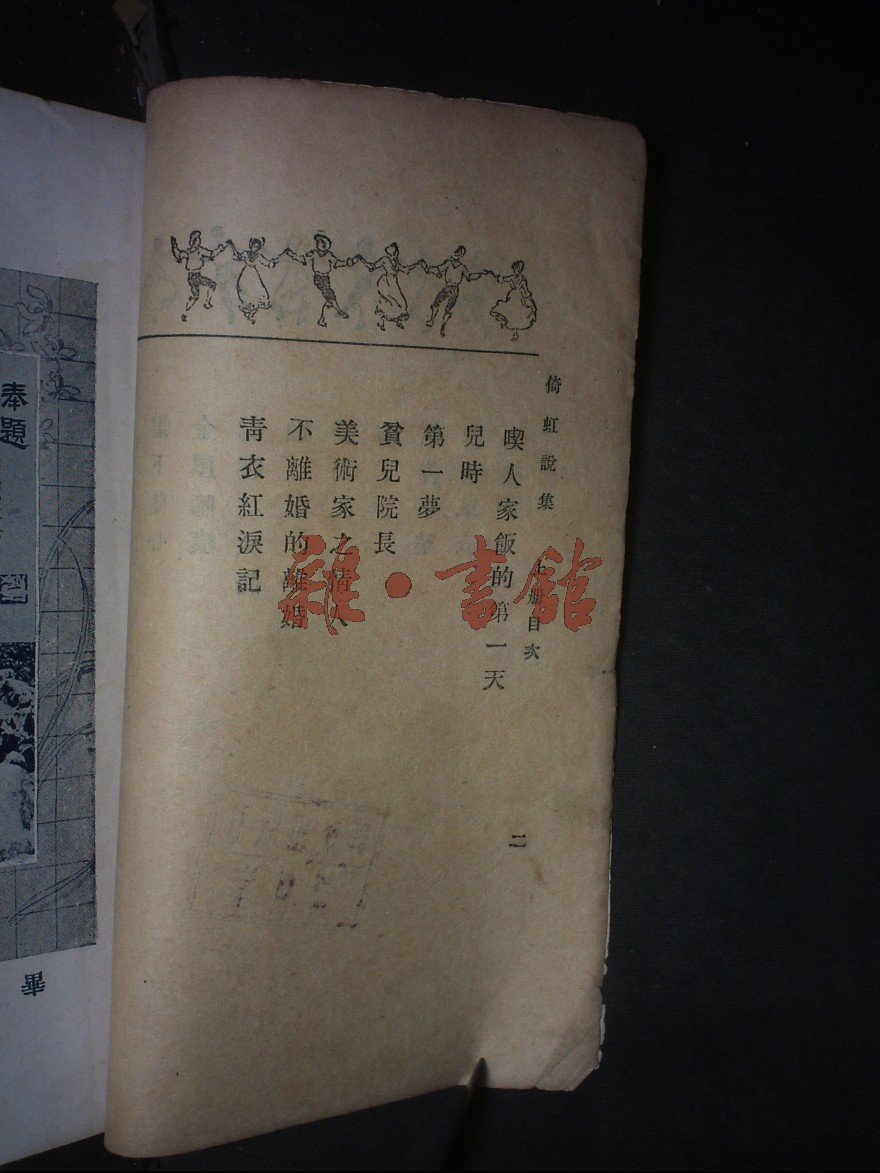 倚虹說集　上册目次
喫人家飯的第一天
兒時
第一夢
貧兒院長
美術家之情人
不離婚的離婚
靑衣紅淚記
二
雜·書館
奉題